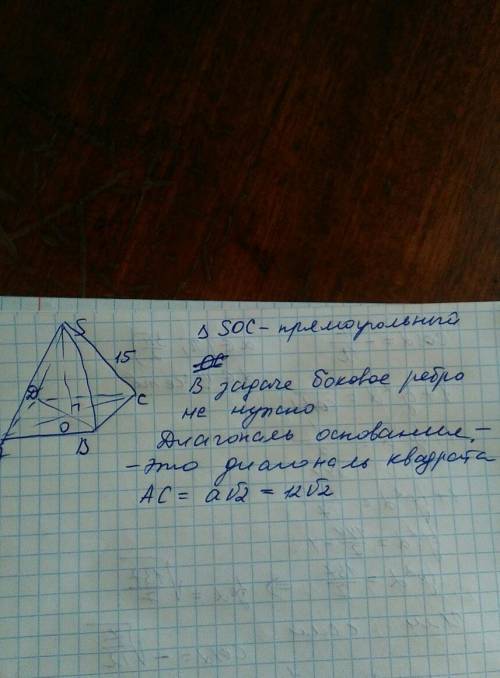 S
15
D
C
O
B
Δ SOC - прямоугольный
OC
В задаче боковое ребро
не нужно
Диагональ основания, -
- это диагональ квадрата
AC = a√2 = 12√2